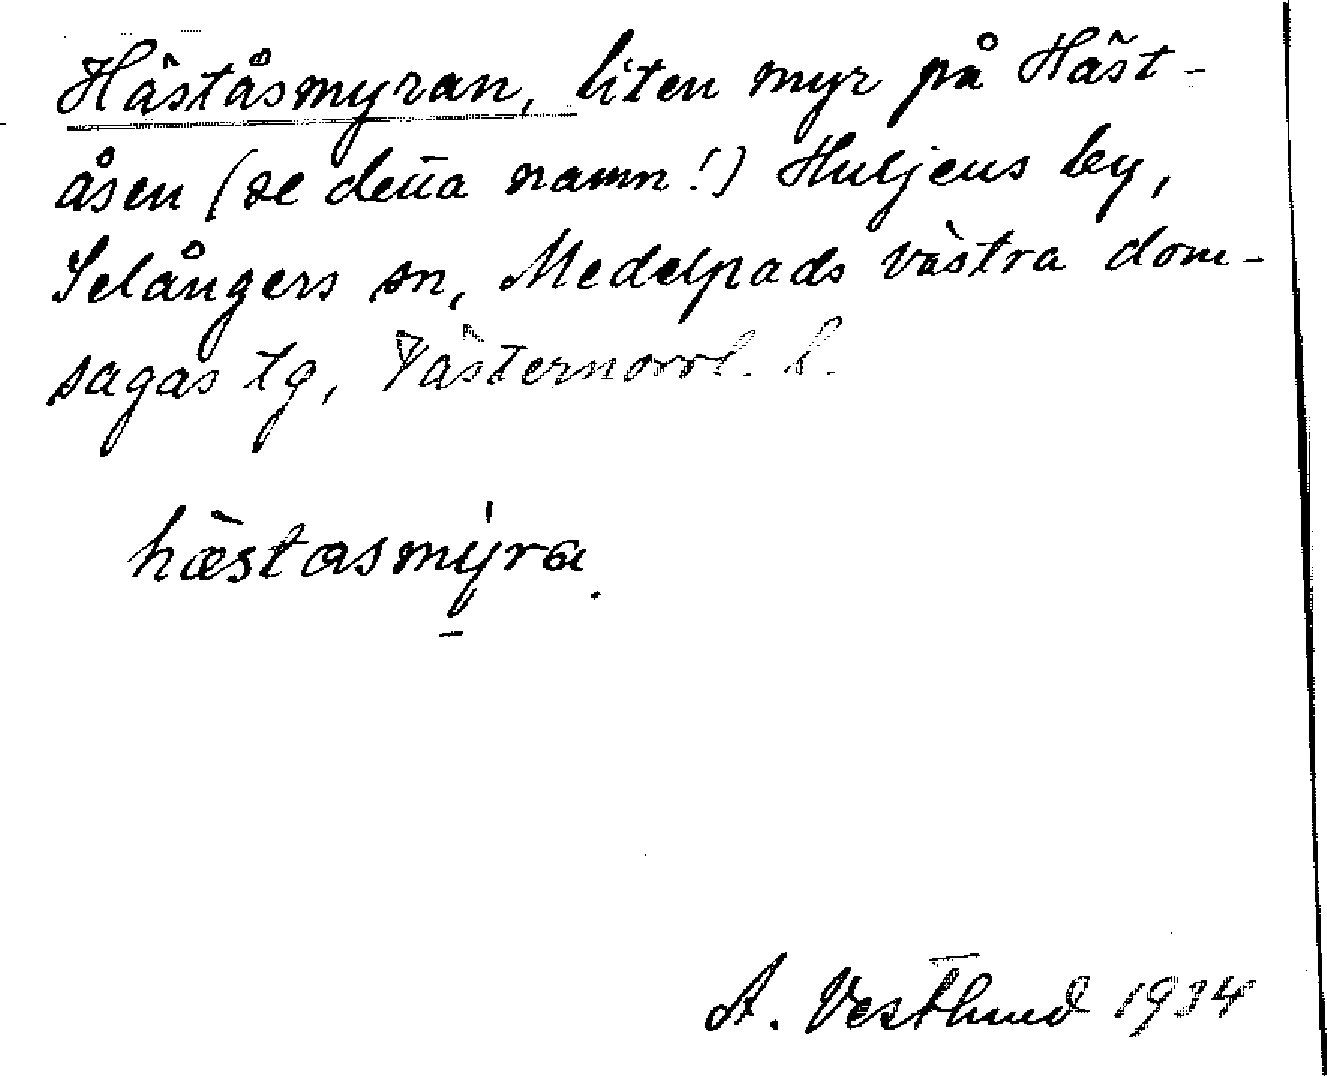 Häståsmyran, liten myr på Häst-
åsen (se detta namn!) Huljens by,
Selångers sn, Medelpads västra dom-
sagas tg, Västernorrl. l.
hæ̀stasmýra.
A. Vestlund 1934